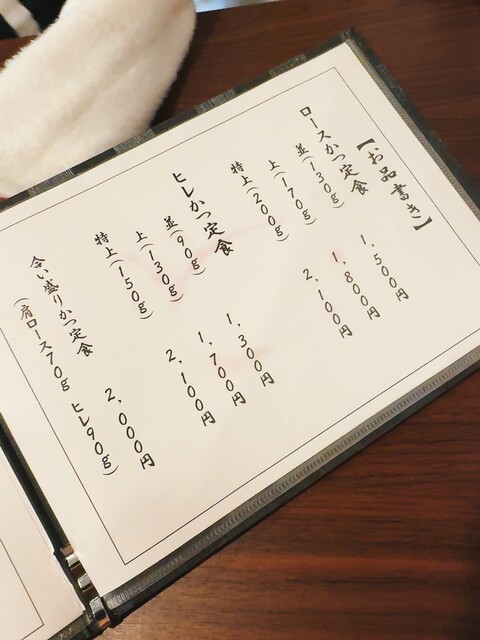 【お品書き】
ロースかつ定食
並(130g) 1,500円
上(170g) 1,800円
特上(200g) 2,100円
ヒレかつ定食
並(90g) 1,300円
上(130g) 1,700円
特上(150g) 2,100円
合い盛りかつ定食 2,000円
(肩ロース70g ヒレ90g)